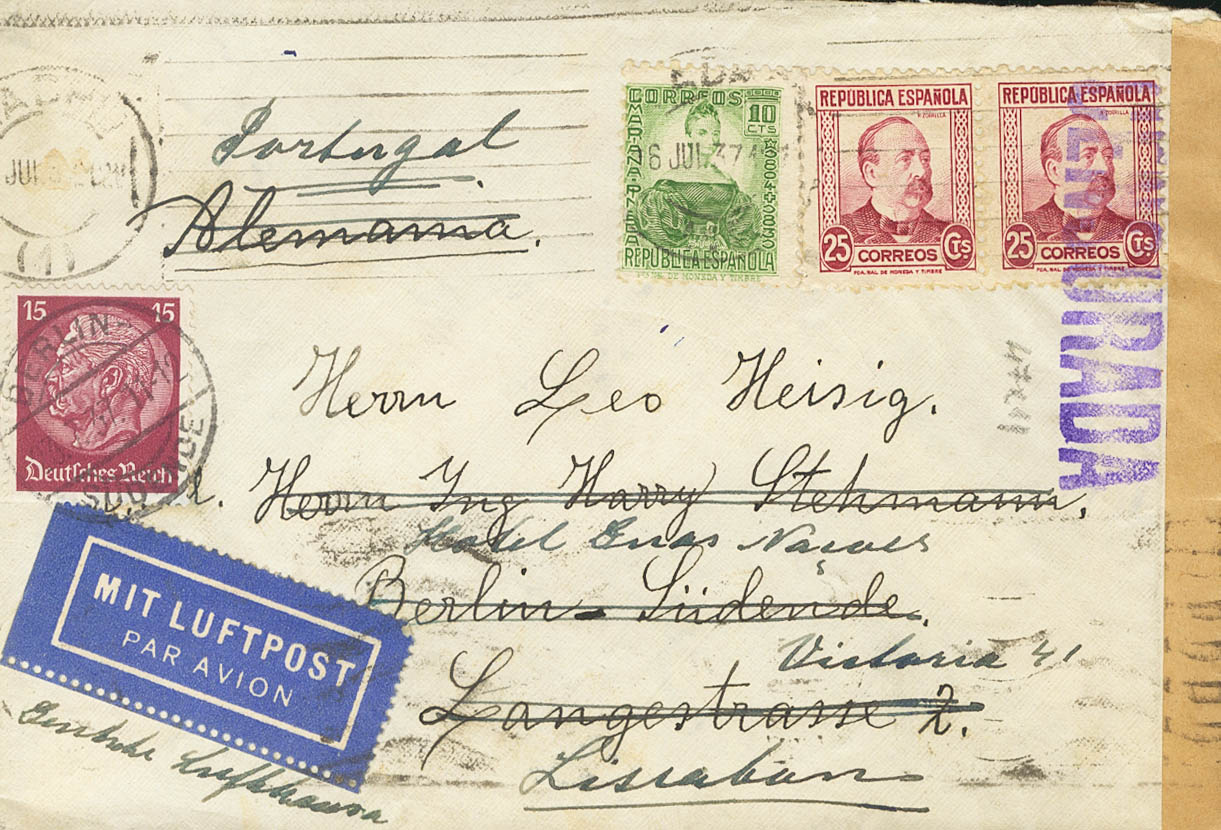 Portugal
Alemania.
CORREOS
10
CTS
MARIANA PINEDA
1804 1830
REPUBLICA ESPAÑOLA
16 JUL 37
REPUBLICA ESPAÑOLA
R. ZORRILLA
25 CORREOS CTS
FCA. NAL. DE MONEDA Y TIMBRE
REPUBLICA ESPAÑOLA
R. ZORRILLA
25 CORREOS CTS
FCA. NAL. DE MONEDA Y TIMBRE
JUL
(1)
15 15
Deutsches Reich
BERLIN
SÜDENDE
Herrn Leo Heisig.
Herrn Ing Harry Stehmann,
Hotel
Berlin-Südende.
Victoria 41
Langestrasse 2.
Lissabon
MIT LUFTPOST
PAR AVION
Deutsche Lufthansa